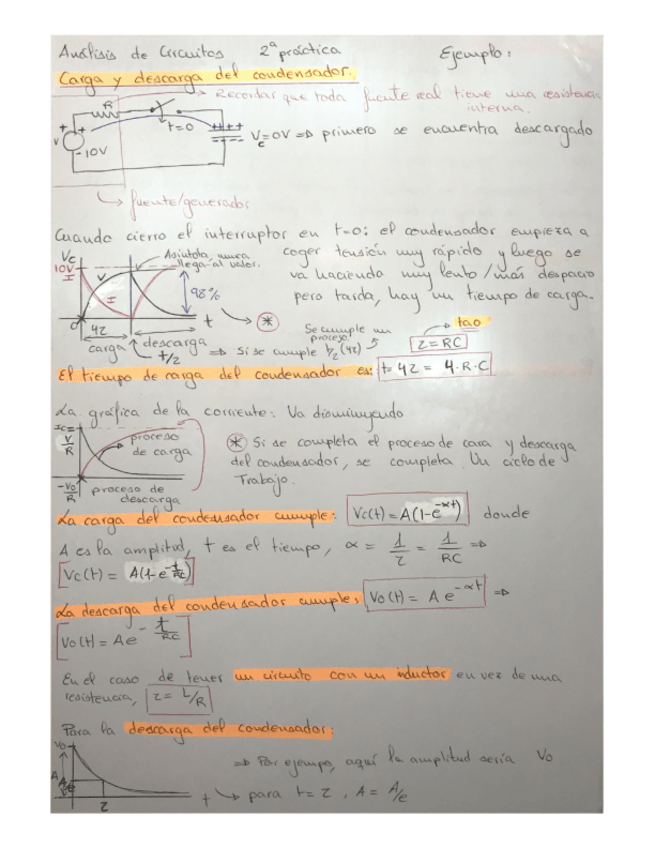 Análisis de Circuitos 2ª práctica Ejemplo:
Carga y descarga del condensador.
Recordar que toda fuente real tiene una resistencia
interna.
R
t=0
++++
V
10V
Vc=0V => primero se encuentra descargado
fuente/generador
Cuando cierro el interruptor en t=0: el condensador empieza a
coger tensión muy rápido y luego se
va haciendo muy lento/más despacio
pero tarda, hay un tiempo de carga.
Vc
10V
I
V
I
Asíntota, nunca
llega al valor.
98%
t
*
0
4τ
carga
descarga
t/2
=> Si se cumple
Se cumple un
proceso!
tao
τ=RC
El tiempo de carga del condensador es: t= 4τ = 4·R·C
La gráfica de la corriente: Va disminuyendo
V/R
proceso
de carga
-Vo/R
proceso de
descarga
* Si se completa el proceso de cara y descarga
del condensador, se completa. Un ciclo de
Trabajo.
La carga del condensador cumple: Vc(t)=A(1-e^-αt) donde
A es la amplitud, t es el tiempo, α = 1/τ = 1/RC =>
Vc(t) = A(1-e^-t/RC)
La descarga del condensador cumple: Vo(t) = A e^-αt =>
Vo(t) = Ae^-t/RC
En el caso de tener un circuito con un inductor en vez de una
resistencia, τ = L/R
Para la descarga del condensador:
Vo
A
A/e
τ
t
=> Por ejemplo, aquí la amplitud sería Vo
para t=τ, A = A/e